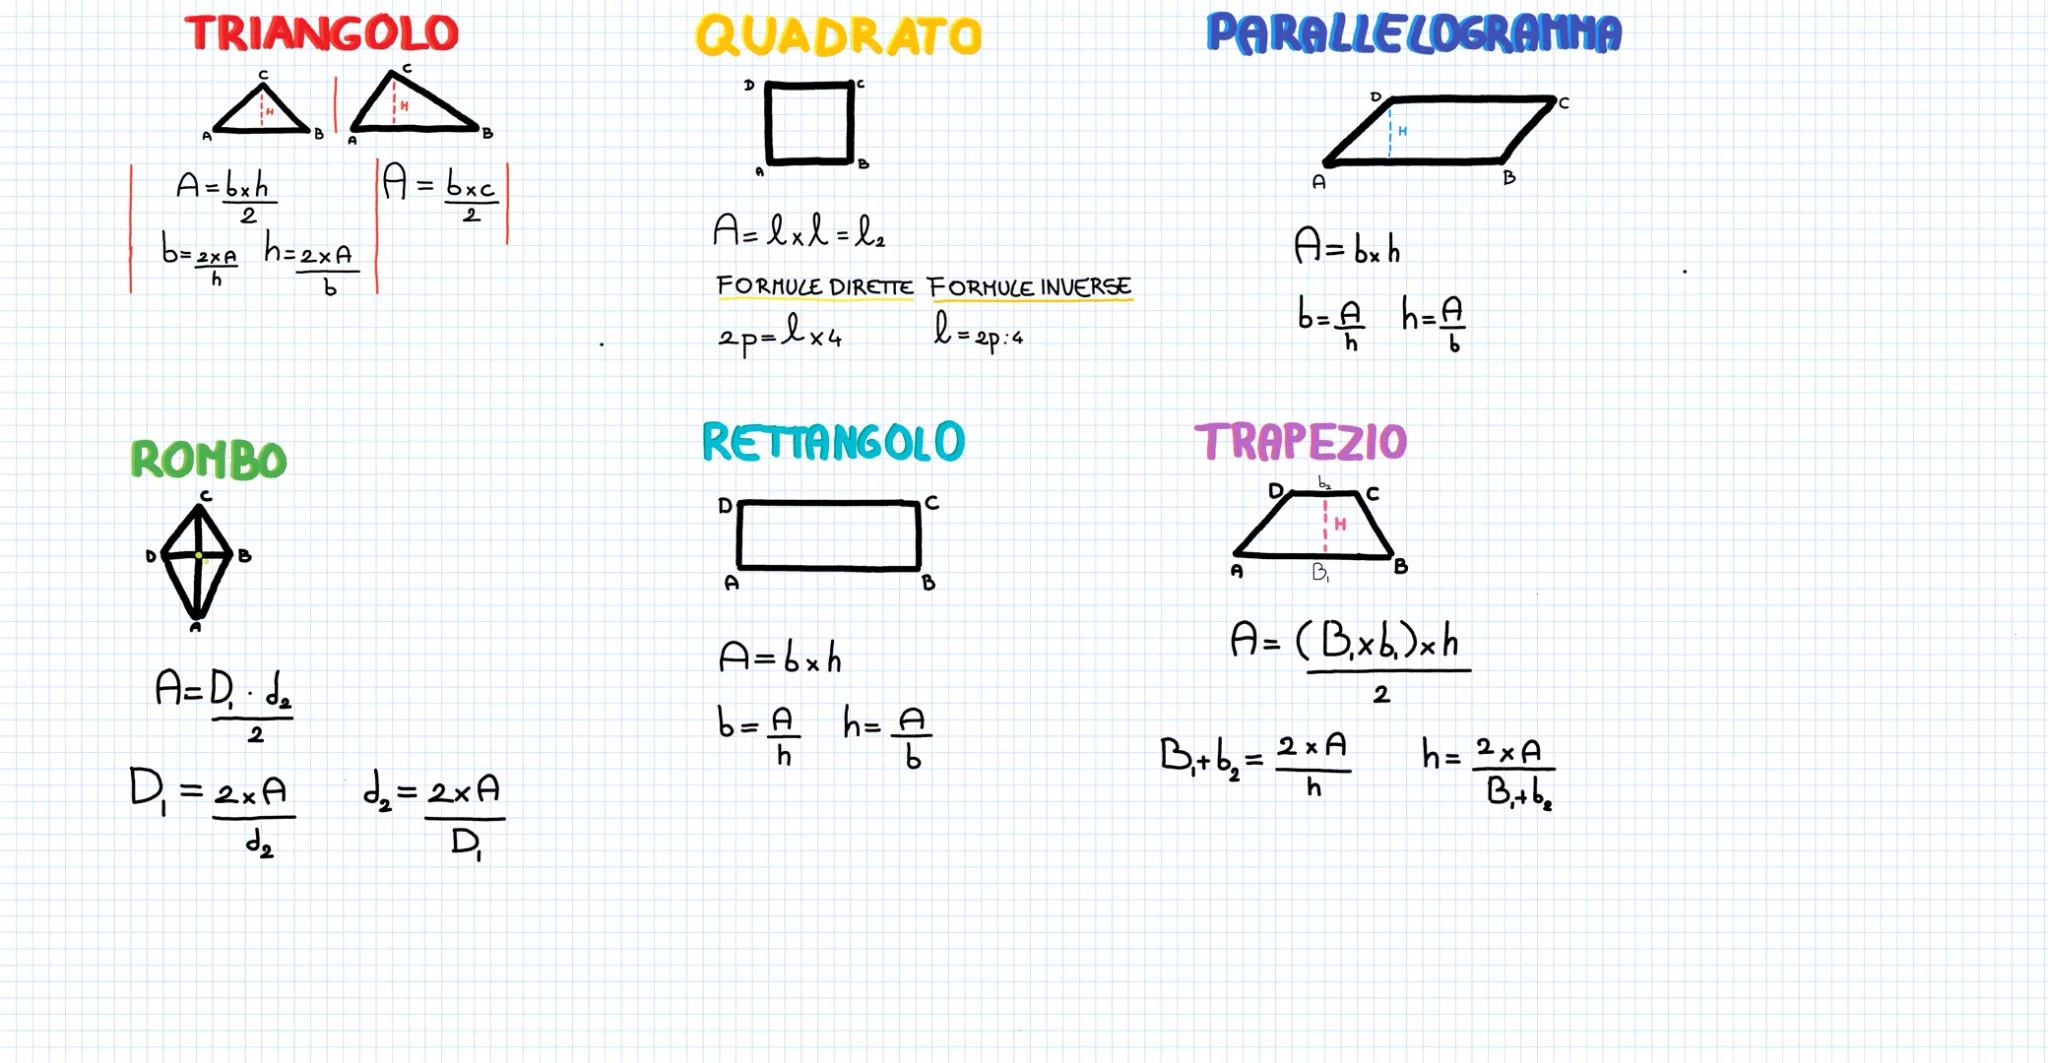 TRIANGOLO
C
H
A
B
C
H
A
B
A = b x h / 2
b = 2 x A / h
h = 2 x A / b
A = b x c / 2
QUADRATO
D
C
A
B
A = l x l = l₂
FORMULE DIRETTE
FORMULE INVERSE
2p = l x 4
l = 2p : 4
PARALLELOGRAMMA
D
C
H
A
B
A = b x h
b = A / h
h = A / b
ROMBO
C
D
B
A
A = D₁ · d₂ / 2
D₁ = 2 x A / d₂
d₂ = 2 x A / D₁
RETTANGOLO
D
C
A
B
A = b x h
b = A / h
h = A / b
TRAPEZIO
D
b₂
C
H
A
B₁
B
A = (B₁ x b₁) x h / 2
B₁ + b₂ = 2 x A / h
h = 2 x A / B₁ + b₂